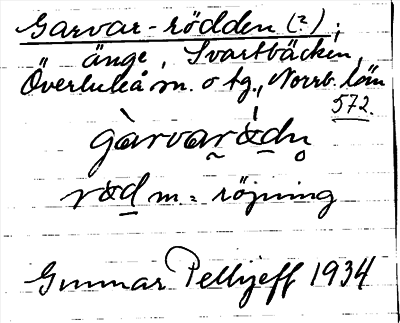 Garvar-rödden (?);
änge, Svartbäcken,
Överluleå sn. o tg., Norrb. län
572.
gàrvarödn̥
röd m = röjning
Gunnar Pellijeff 1934